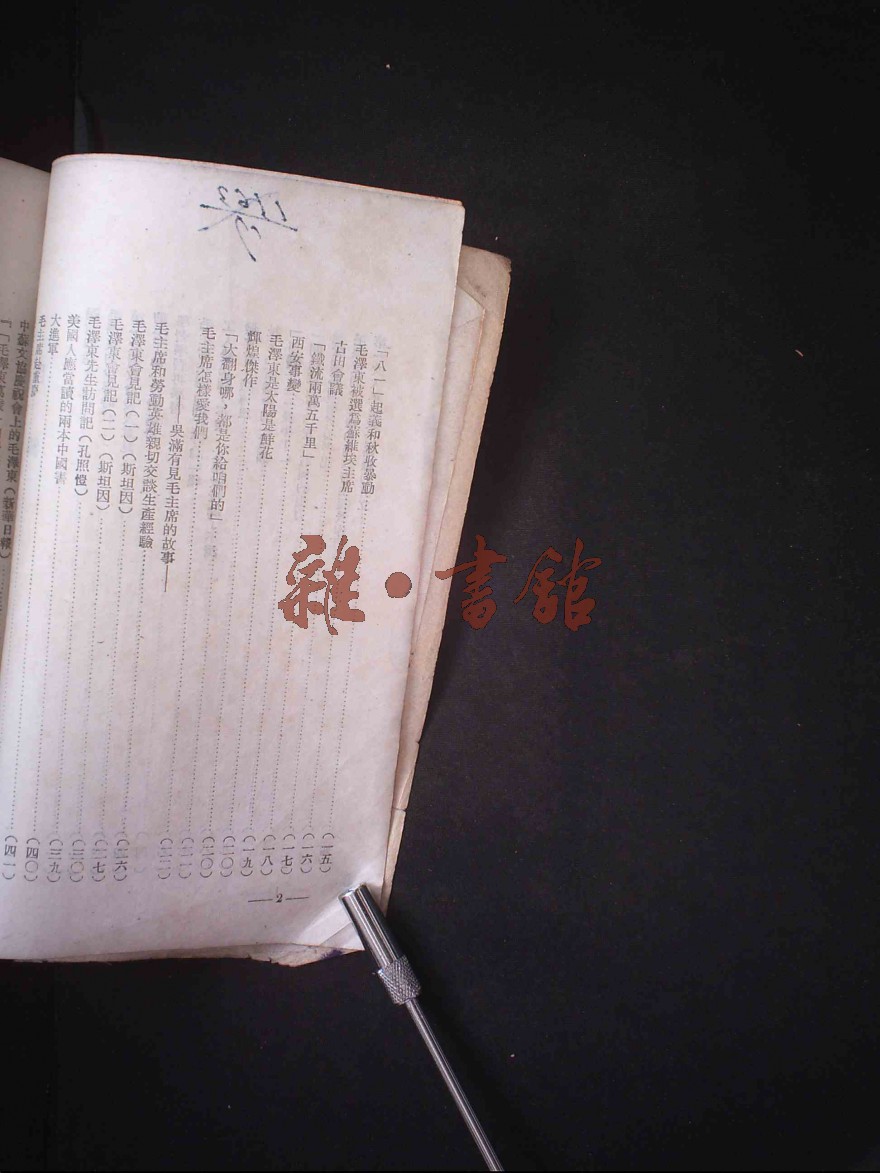 「八一」起義和秋收暴動
毛澤東被選爲蘇維埃主席
古田會議
「鐵流兩萬五千里」
西安事變
毛澤東是太陽是鮮花
輝煌傑作
「大翻身哪，都是你給咱們的」
毛主席怎樣愛我們
——吳滿有見毛主席的故事——
毛主席和勞動英雄親切交談生產經驗
毛澤東會見記(一)(斯坦因)
毛澤東會見記(二)(斯坦因)
毛澤東先生訪問記(孔照愷)
美國人應當讀的兩本中國書
大進軍
中蘇文協慶祝會上的毛澤東(新華日報)
(一五)
(一六)
(一七)
(一八)
(一九)
(二〇)
(二〇)
(二一)
(二二)
(二六)
(二七)
(三〇)
(三九)
(四〇)
(四一)
—2—
雜·書館